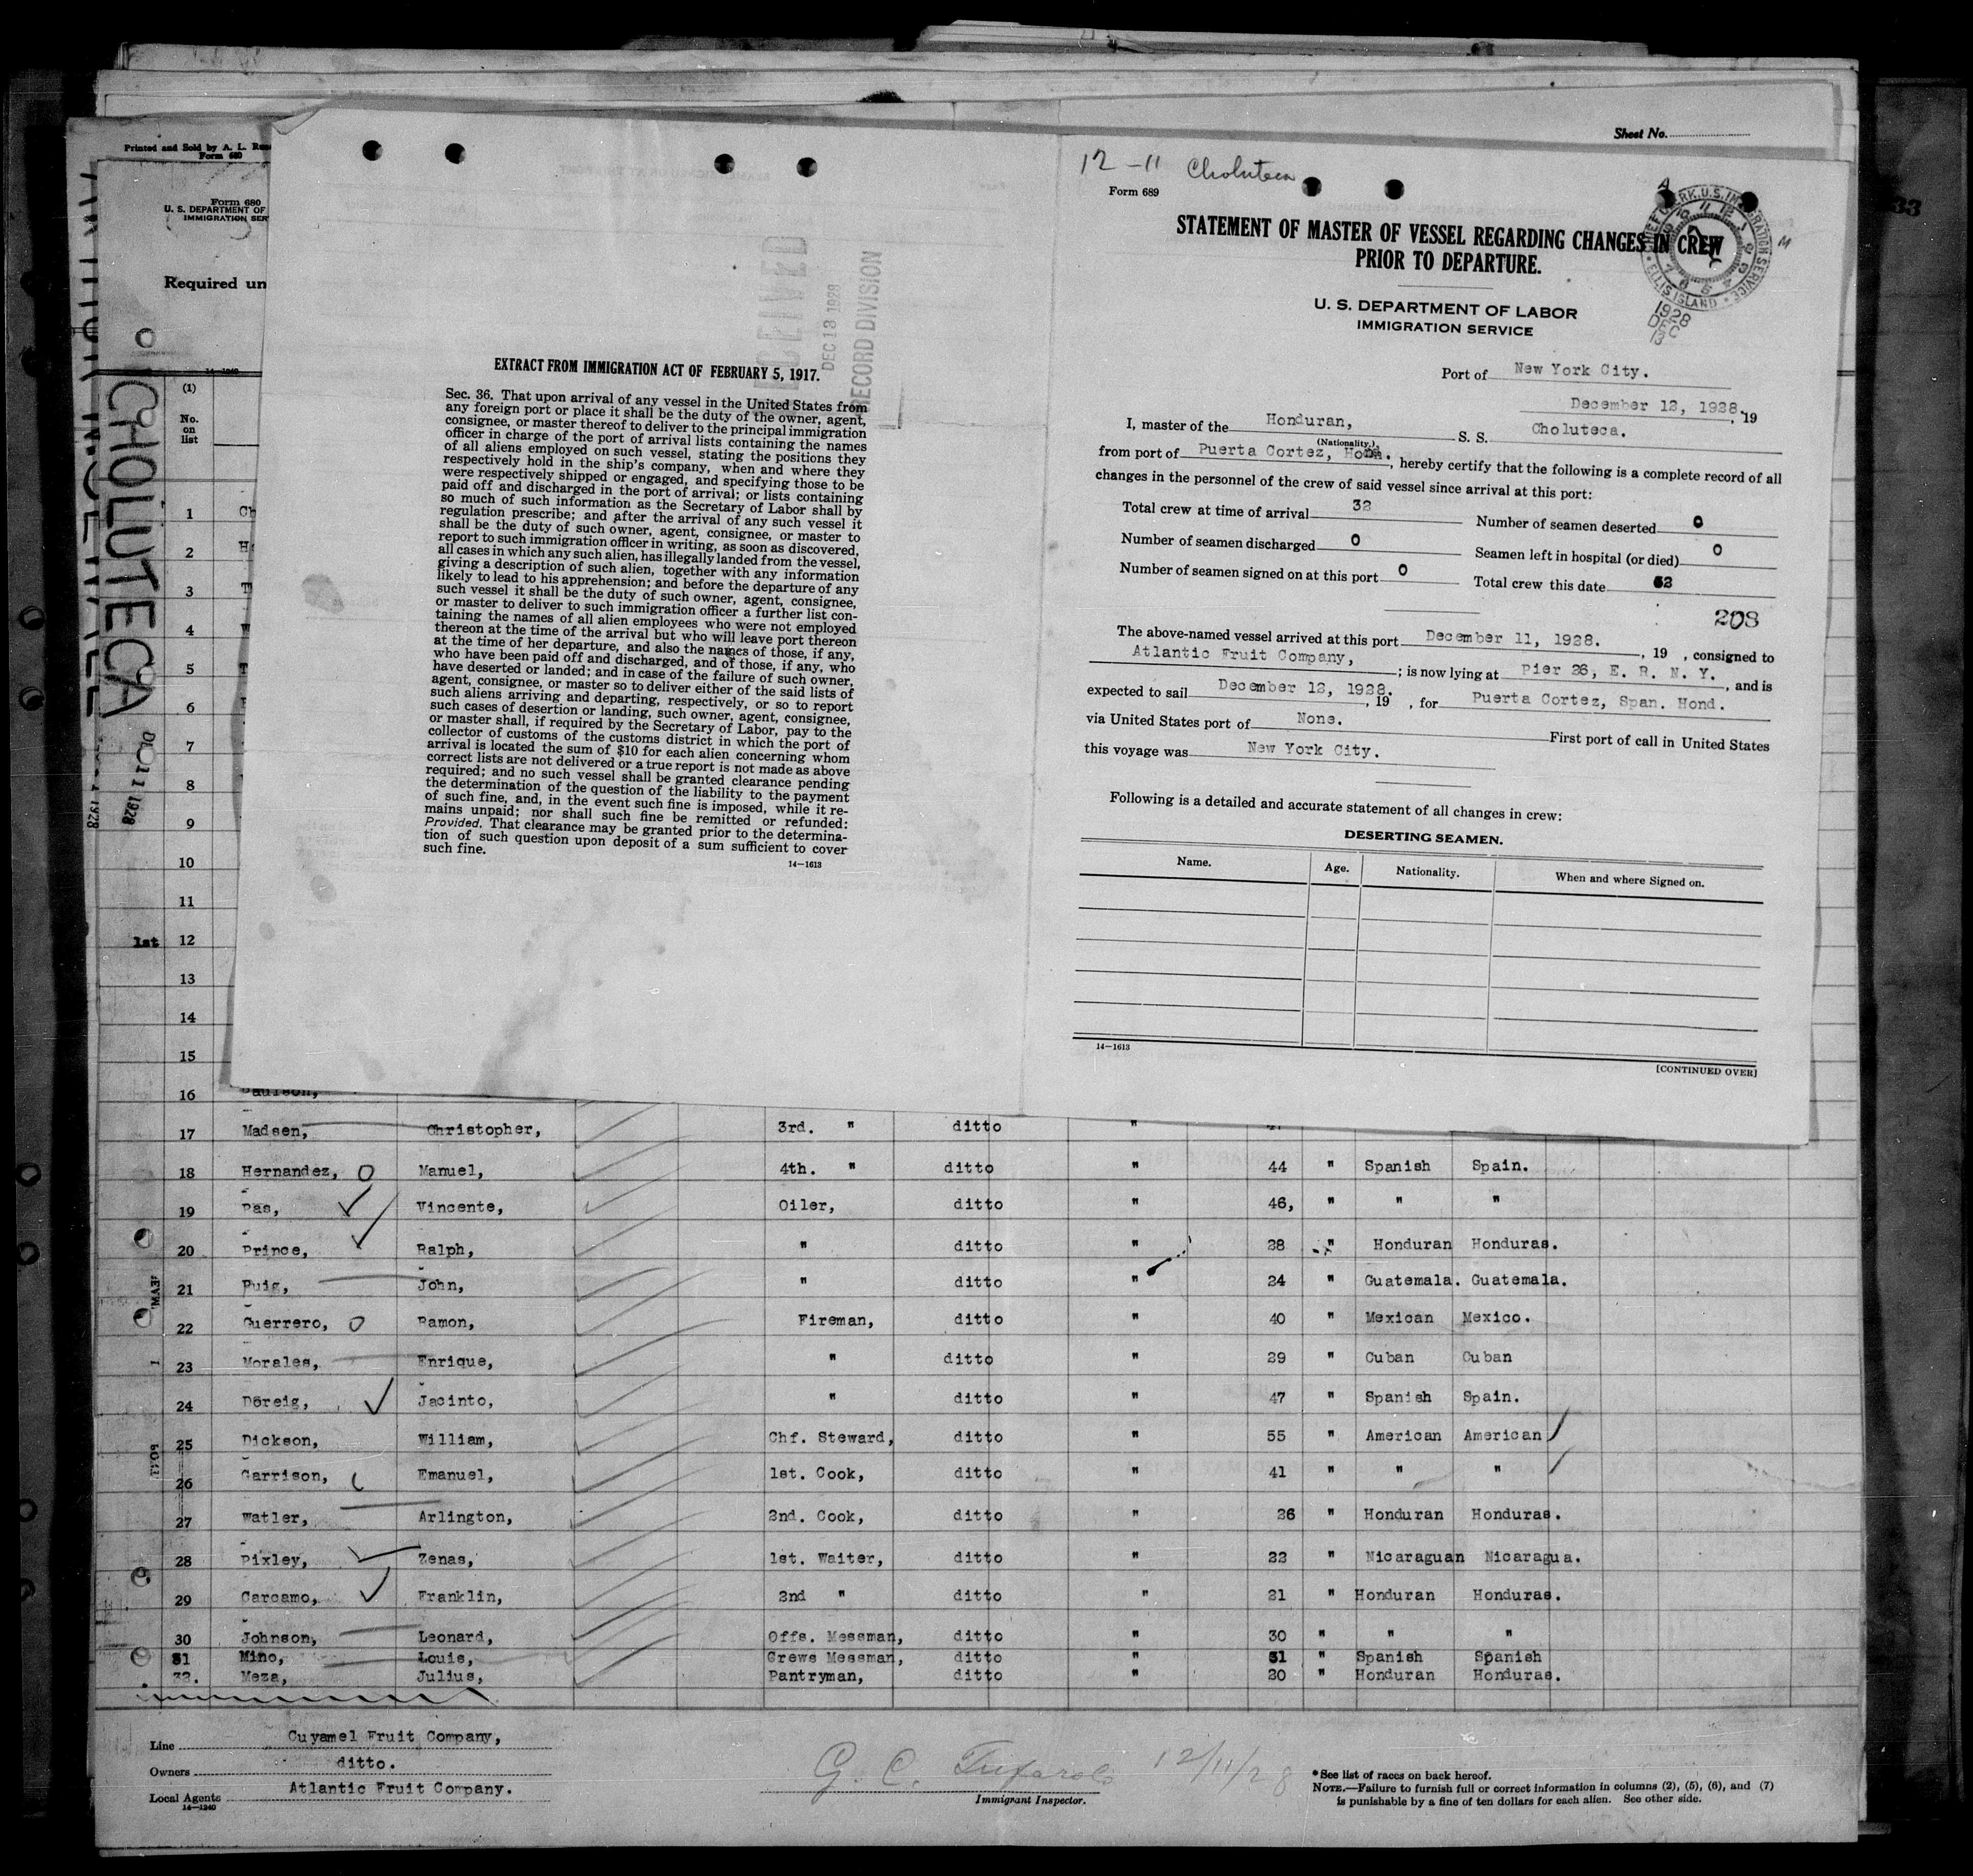 Sheet No.
Printed and Sold by A. L.
Form 680
Form 680
U. S. DEPARTMENT OF
IMMIGRATION SER
Required un
14-1240
(1)
No.
on
list
CHOLUTECA
DEC 11 1928
RECEIVED
DEC 13 1928
RECORD DIVISION
EXTRACT FROM IMMIGRATION ACT OF FEBRUARY 5, 1917.
Sec. 36. That upon arrival of any vessel in the United States from
any foreign port or place it shall be the duty of the owner, agent,
consignee, or master thereof to deliver to the principal immigration
officer in charge of the port of arrival lists containing the names
of all aliens employed on such vessel, stating the positions they
respectively hold in the ship's company, when and where they
were respectively shipped or engaged, and specifying those to be
paid off and discharged in the port of arrival; or lists containing
so much of such information as the Secretary of Labor shall by
regulation prescribe; and after the arrival of any such vessel it
shall be the duty of such owner, agent, consignee, or master to
report to such immigration officer in writing, as soon as discovered,
all cases in which any such alien, has illegally landed from the vessel,
giving a description of such alien, together with any information
likely to lead to his apprehension; and before the departure of any
such vessel it shall be the duty of such owner, agent, consignee,
or master to deliver to such immigration officer a further list con-
taining the names of all alien employees who were not employed
thereon at the time of the arrival but who will leave port thereon
at the time of her departure, and also the names of those, if any,
who have been paid off and discharged, and of those, if any, who
have deserted or landed; and in case of the failure of such owner,
agent, consignee, or master so to deliver either of the said lists of
such aliens arriving and departing, respectively, or so to report
such cases of desertion or landing, such owner, agent, consignee,
or master shall, if required by the Secretary of Labor, pay to the
collector of customs of the customs district in which the port of
arrival is located the sum of $10 for each alien concerning whom
correct lists are not delivered or a true report is not made as above
required; and no such vessel shall be granted clearance pending
the determination of the question of the liability to the payment
of such fine, and, in the event such fine is imposed, while it re-
mains unpaid; nor shall such fine be remitted or refunded:
Provided, That clearance may be granted prior to the determina-
tion of such question upon deposit of a sum sufficient to cover
such fine.
14-1613
12-11 Choluteca
Form 689
STATEMENT OF MASTER OF VESSEL REGARDING CHANGES IN CREW
PRIOR TO DEPARTURE.
CHIEF CLERK, U.S. IMMIGRATION SERVICE
ELLIS ISLAND
1928
DEC
13
U. S. DEPARTMENT OF LABOR
IMMIGRATION SERVICE
Port of New York City.
December 12, 1928, 19
I, master of the Honduran, S. S. Choluteca.
(Nationality.)
from port of Puerta Cortez, Hond., hereby certify that the following is a complete record of all
changes in the personnel of the crew of said vessel since arrival at this port:
Total crew at time of arrival 32 Number of seamen deserted 0
Number of seamen discharged 0 Seamen left in hospital (or died) 0
Number of seamen signed on at this port 0 Total crew this date 32
208
The above-named vessel arrived at this port December 11, 1928. , 19 , consigned to
Atlantic Fruit Company, ; is now lying at Pier 26, E. R. N. Y. , and is
expected to sail December 12, 1928. , 19 , for Puerta Cortez, Span. Hond.
via United States port of None. First port of call in United States
this voyage was New York City.
Following is a detailed and accurate statement of all changes in crew:
DESERTING SEAMEN.
Name. Age. Nationality. When and where Signed on.
14-1613
[CONTINUED OVER]
1 Ch
2
3
4
5
6
7
8
9
10
11
1st 12
13
14
15
16 Paulson,
17 Madsen, Christopher, 3rd. " ditto "
18 Hernandez, Manuel, 4th. " ditto " 44 " Spanish Spain.
19 Pas, Vincente, Oiler, ditto " 46, " " "
20 Prince, Ralph, " ditto " 28 " Honduran Honduras.
21 Puig, John, " ditto " 24 " Guatemala. Guatemala.
22 Guerrero, Ramon, Fireman, ditto " 40 " Mexican Mexico.
23 Morales, Enrique, " ditto " 29 " Cuban Cuban
24 Doreig, Jacinto, " ditto " 47 " Spanish Spain.
25 Dickson, William, Chf. Steward, ditto " 55 " American American
26 Garrison, Emanuel, 1st. Cook, ditto " 41 " " "
27 Watler, Arlington, 2nd. Cook, ditto " 26 " Honduran Honduras.
28 Pixley, Zenas, 1st. Waiter, ditto " 22 " Nicaraguan Nicaragua.
29 Carcamo, Franklin, 2nd " ditto " 21 " Honduran Honduras.
30 Johnson, Leonard, Offs. Messman, ditto " 30 " " "
31 Mino, Louis, Crews Messman, ditto " 31 " Spanish Spanish
32. Meza, Julius, Pantryman, ditto " 20 " Honduran Honduras.
Line Cuyamel Fruit Company,
Owners ditto.
Local Agents Atlantic Fruit Company.
14-1240
G. C. 12/11/28
Immigrant Inspector.
*See list of races on back hereof.
NOTE.—Failure to furnish full or correct information in columns (2), (5), (6), and (7)
is punishable by a fine of ten dollars for each alien. See other side.
33